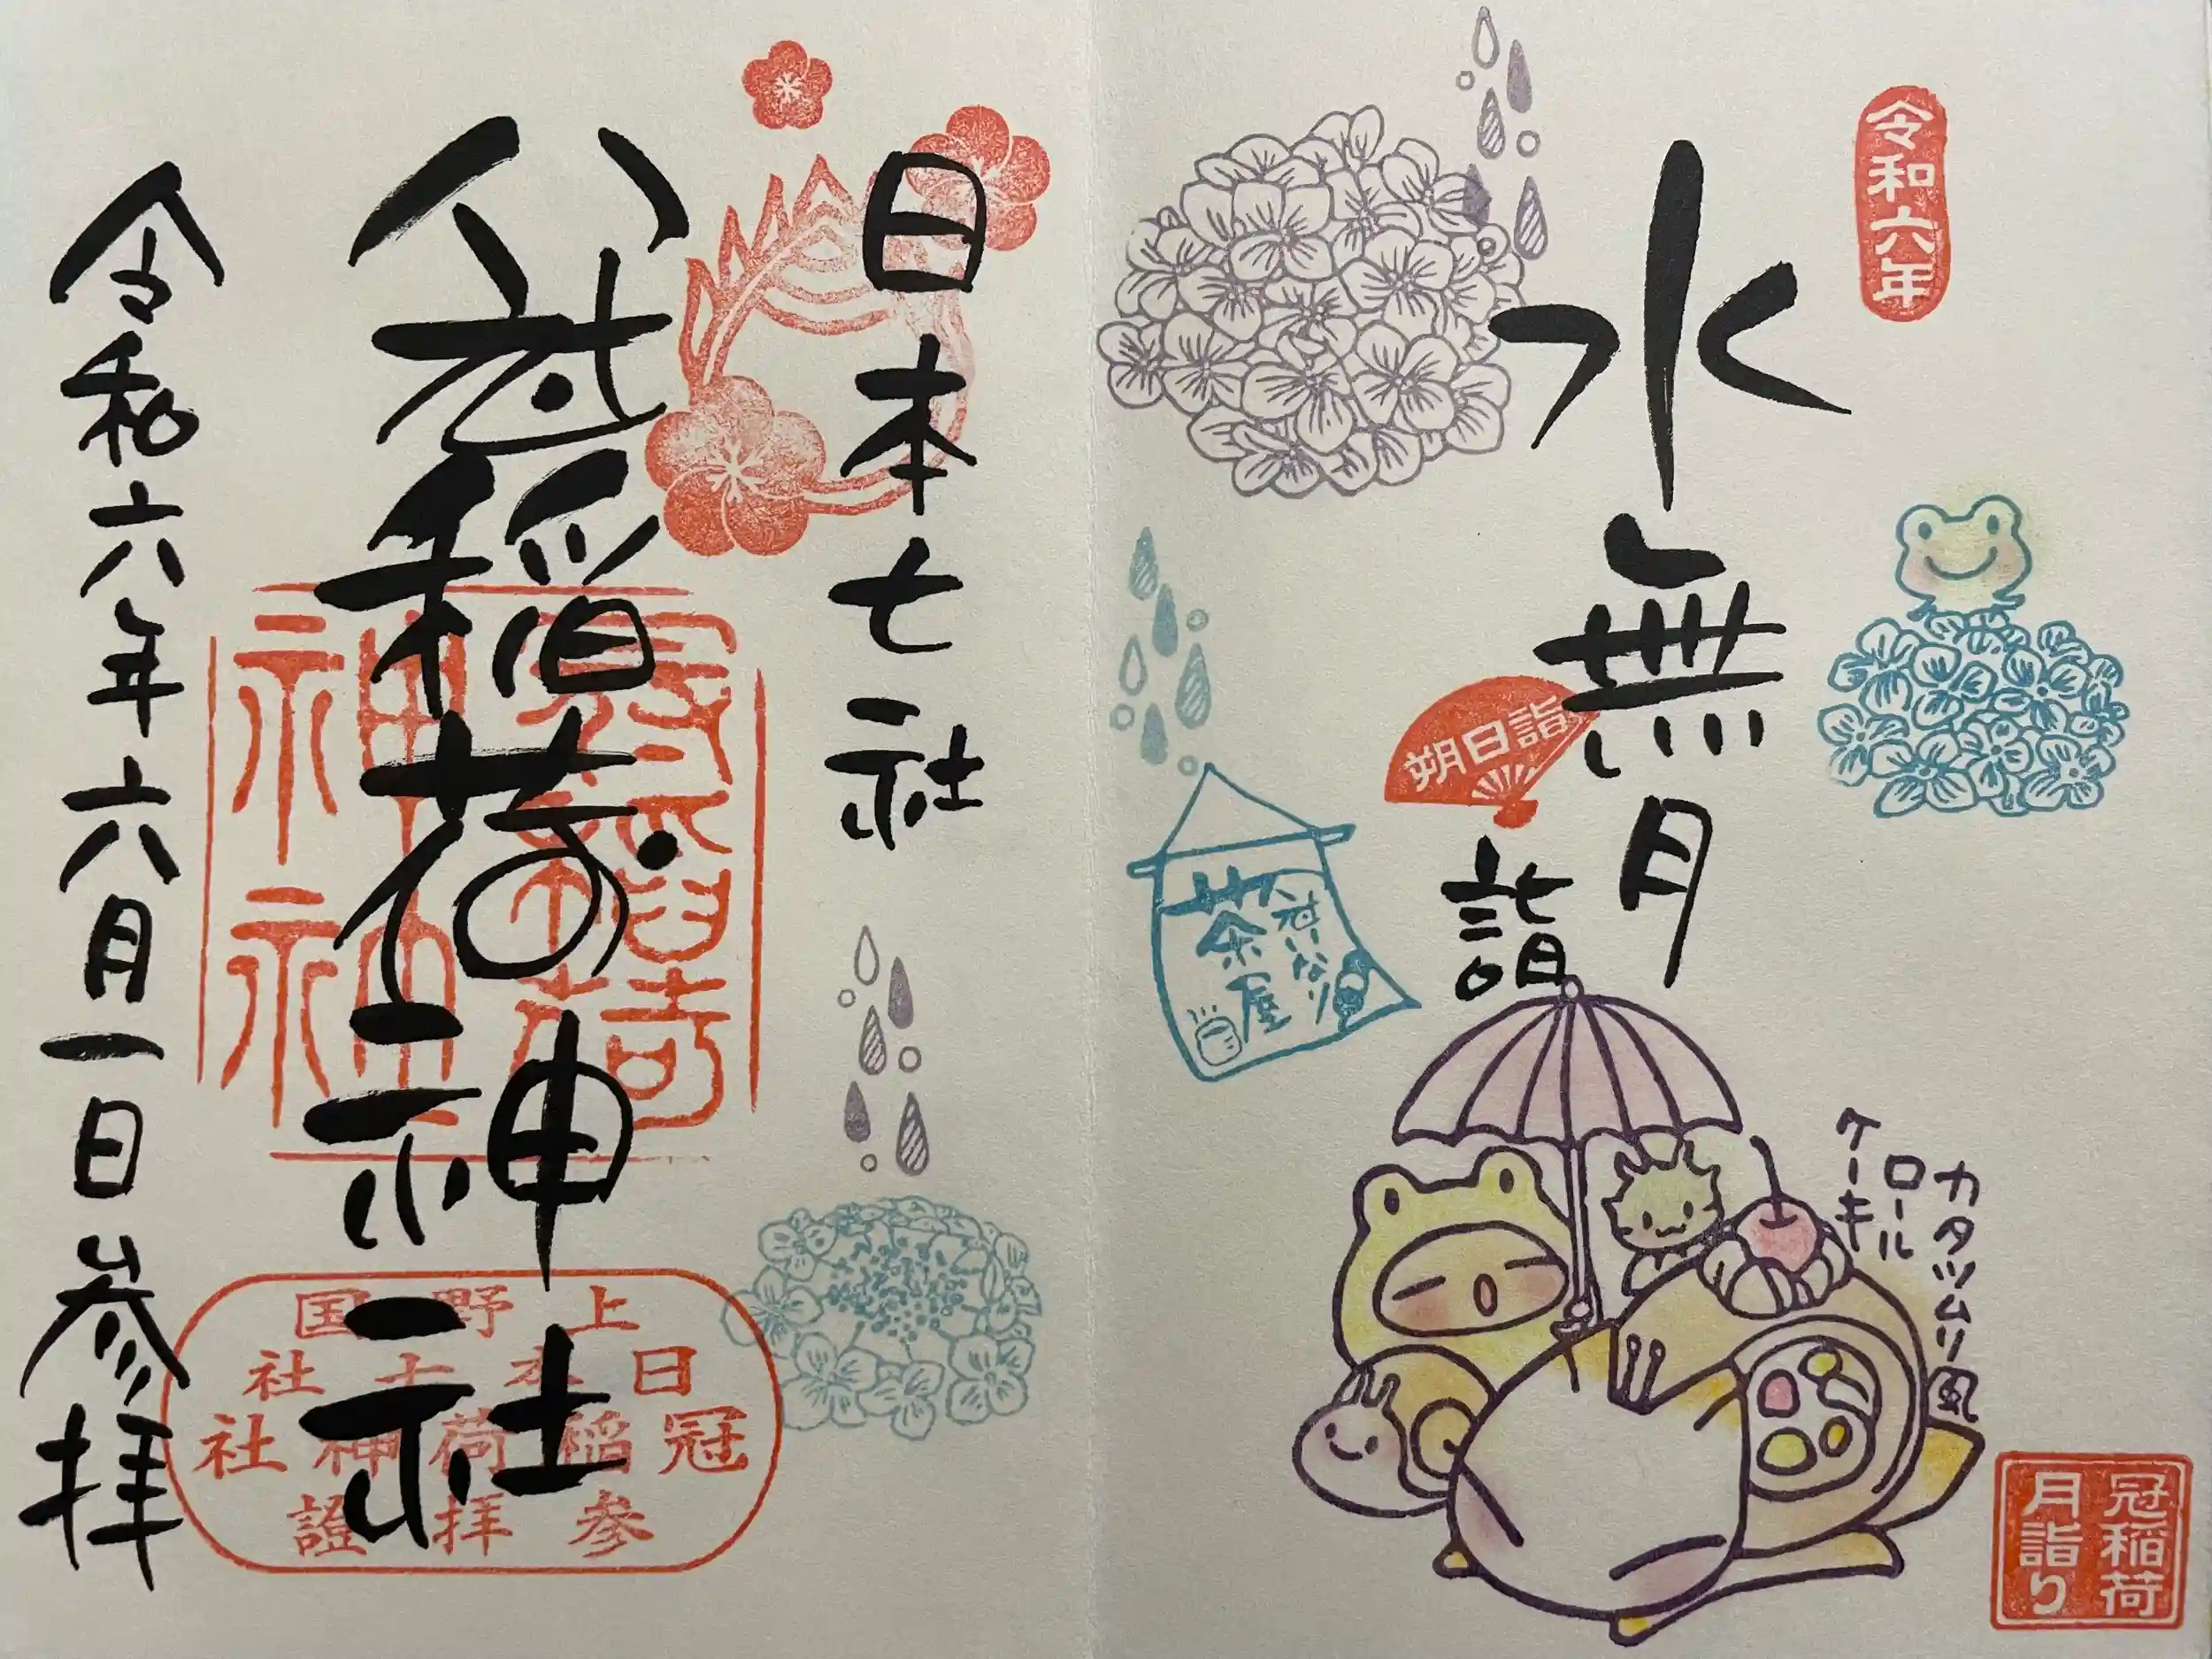 令和六年
水無月
朔日詣
詣
冠いなり
茶屋
カタツムリ風
ロール
ケーキ
冠稲荷
月詣り
日本七社
冠稲荷神社
冠稲荷
神社
上野国
日本七社
冠稲荷神社
参拝證
令和六年六月一日参拝